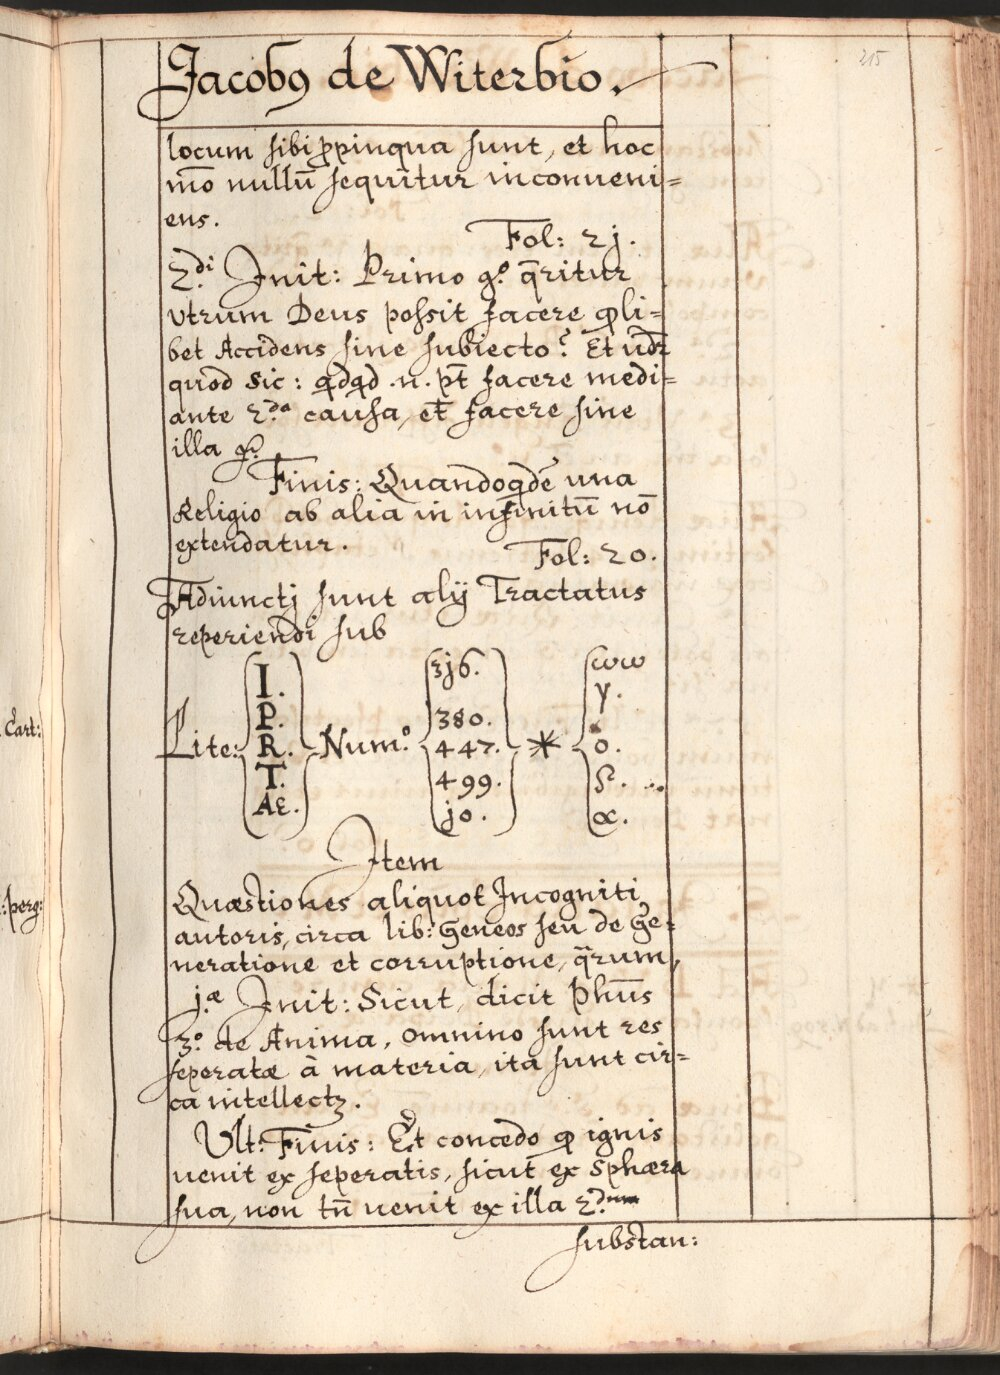 215
Jacobꝯ de Witerbio.
locum sibi ꝓpinqua sunt, et hoc
mō nullū sequitur inconueni=
ens.
Fol: 2j.
2.di Init: Primo g.o q̄ritur
vtrum Deus possit facere qli=
bet Accidens sine subiecto? Et vdr̄
quod sic: qdqd .n. pt̄ facere medi=
ante 2.da causa, et facere sine
illa
Finis: Quandoqdē una
Religio ab alia in infinitū nō
extendatur.
Fol: 20.
Adiunctj sunt alij Tractatus
reperiendi sub
Lite: I. P. R. T. Æ. Num.o 3j6. 380. 447. 499. jo. * ωω γ. o. ς. α.
Cart:
Item
Quæstiones aliquot Incogniti
:perg:
autoris, circa lib: Geneos seu de Ge=
neratione et corruptione, q̄rum,
j.æ Init: Sicut, dicit Phūs
3.o de Anima, omnino sunt res
seperatæ à materia, ita sunt cir=
ca intellectꝫ.
Ult: Finis: Et concedo ꝙ ignis
uenit ex seperatis, sicut ex Sphæra
sua, non tn̄ uenit ex illa 2.dum
substan: